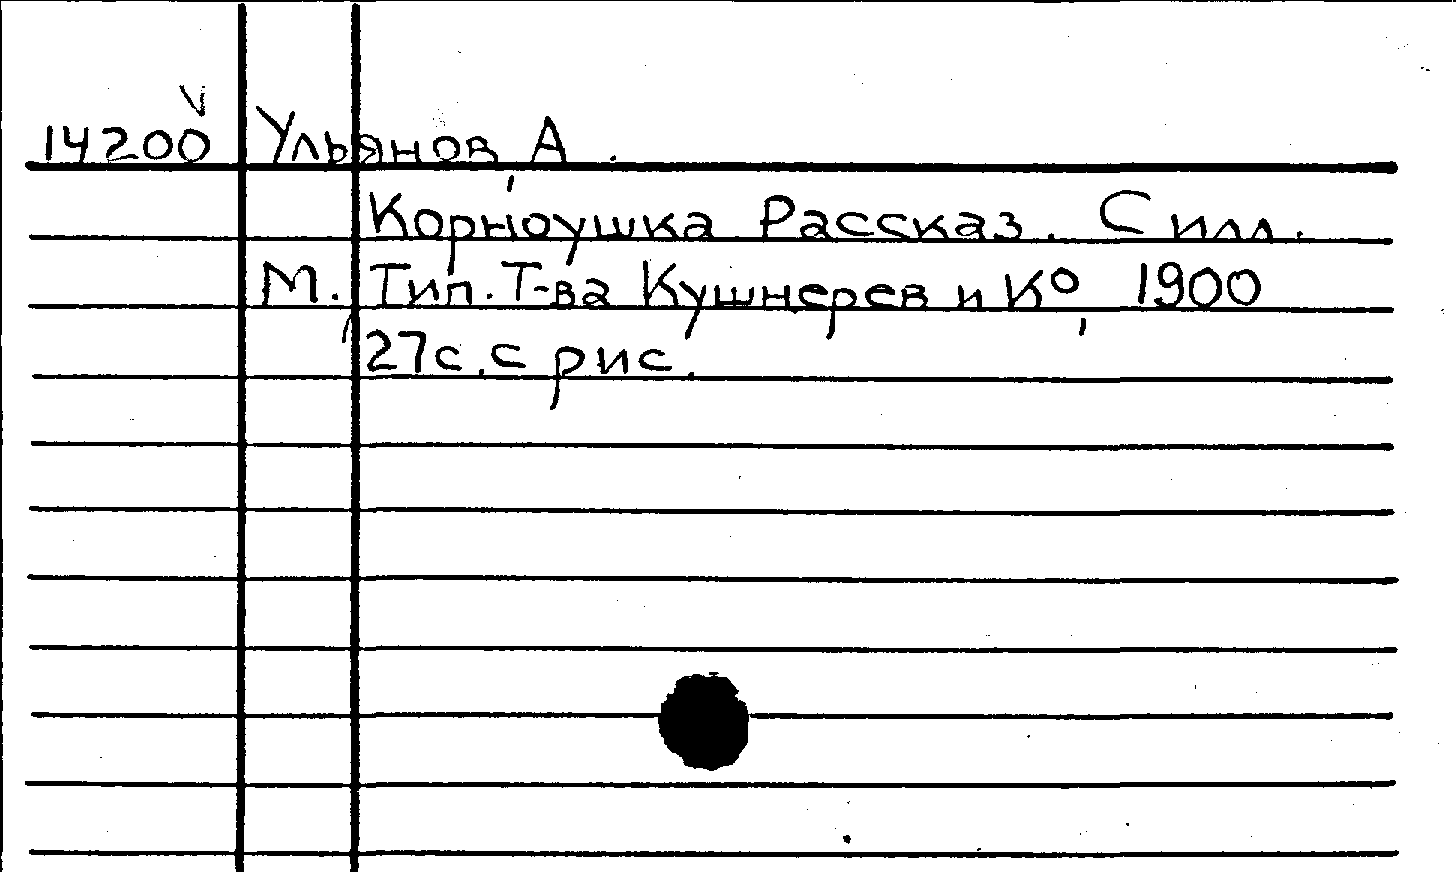 14200 Ульянов, А.
Корноушка Рассказ. С илл.
М. Тип. Т-ва Кушнерев и Ко, 1900
27с. с рис.